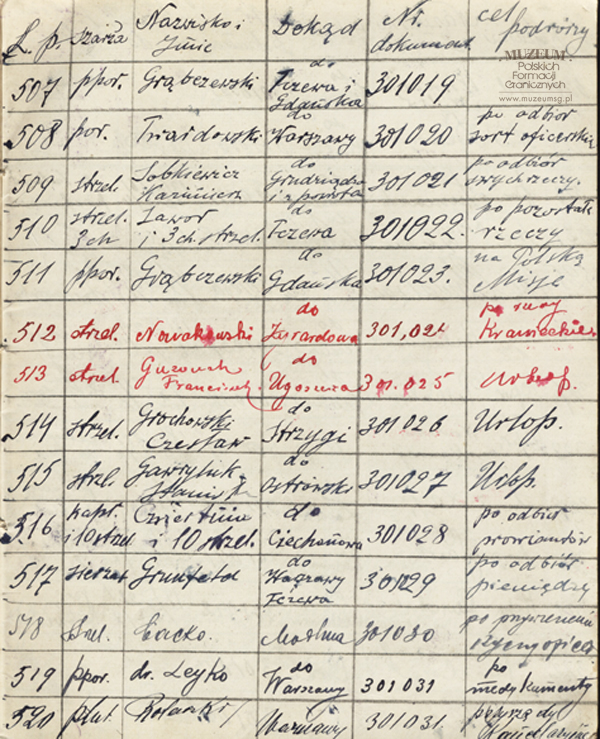 L. p. Szarża Nazwisko i Imię Dokąd Nr. dokument. cel podróży
MUZEUM
Polskich
Formacji
Granicznych
www.muzeumsg.pl
507 ppor. Grąbczewski do Tczewa i Gdańska 301019
508 por. Twardowski do Warszawy 301020 po odbiór sort oficerskich
509 strzel. Sobkiewicz Kazimierz do Grudziądza i z powrotem 301021 po odbiór swych rzeczy.
510 strzel. 3ch Jawor i 3ch. strzel. do Tczewa 301022. po pozostałe rzeczy
511 ppor. Grąbczewski do Gdańska 301023. na Polską Misję
512 strzel. Nowakowski do Żyrardowa 301,024
513 strzel. Franciszek. do 301.025 Urlop.
514 strzel. Grochowski Czesław do Strzygi 301026 Urlop.
515 strzl. Gawryluk do 301027 Urlop.
516 kapt. i 10 strzel i 10 strzel. do Ciechanowa 301028 po odbiór prowiantów
517 sierżat Grunfeld do Warszawy Tczewa 301029 po odbiór pieniędzy
518 Lacko. Modlina 301030 po
519 ppor. dr. Leyko do Warszawy 301031 po medykamenty
520 plut. Warszawy 301031